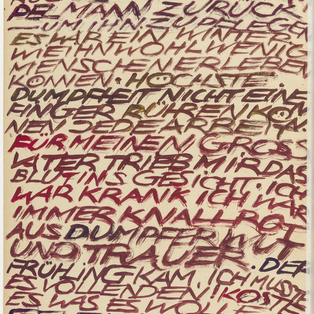 PELMANN ZURÜCK
ES WAR EIN WINTER
WIE IHN WOHL WENIG
MENSCHEN ERLEBEN
KÖNNEN. HÖCHSTE
DUMPFHEIT NICHT EINEN
FINGER RÜHREN KÖN
NEN JEDE ARBEIT A.
FÜR MEINEN GROSS
VATER TRIEB MIR DAS
BLUT INS GESICHT. ICH
WAR KRANK ICH WAR
IMMER KNALLROT
AUS DUMPFER WUT
UND TRAUER. DER
FRÜHLING KAM. ICH MUSSTE
ES VOLLENDEN. KOSTE
ES WAS ES WOLLE